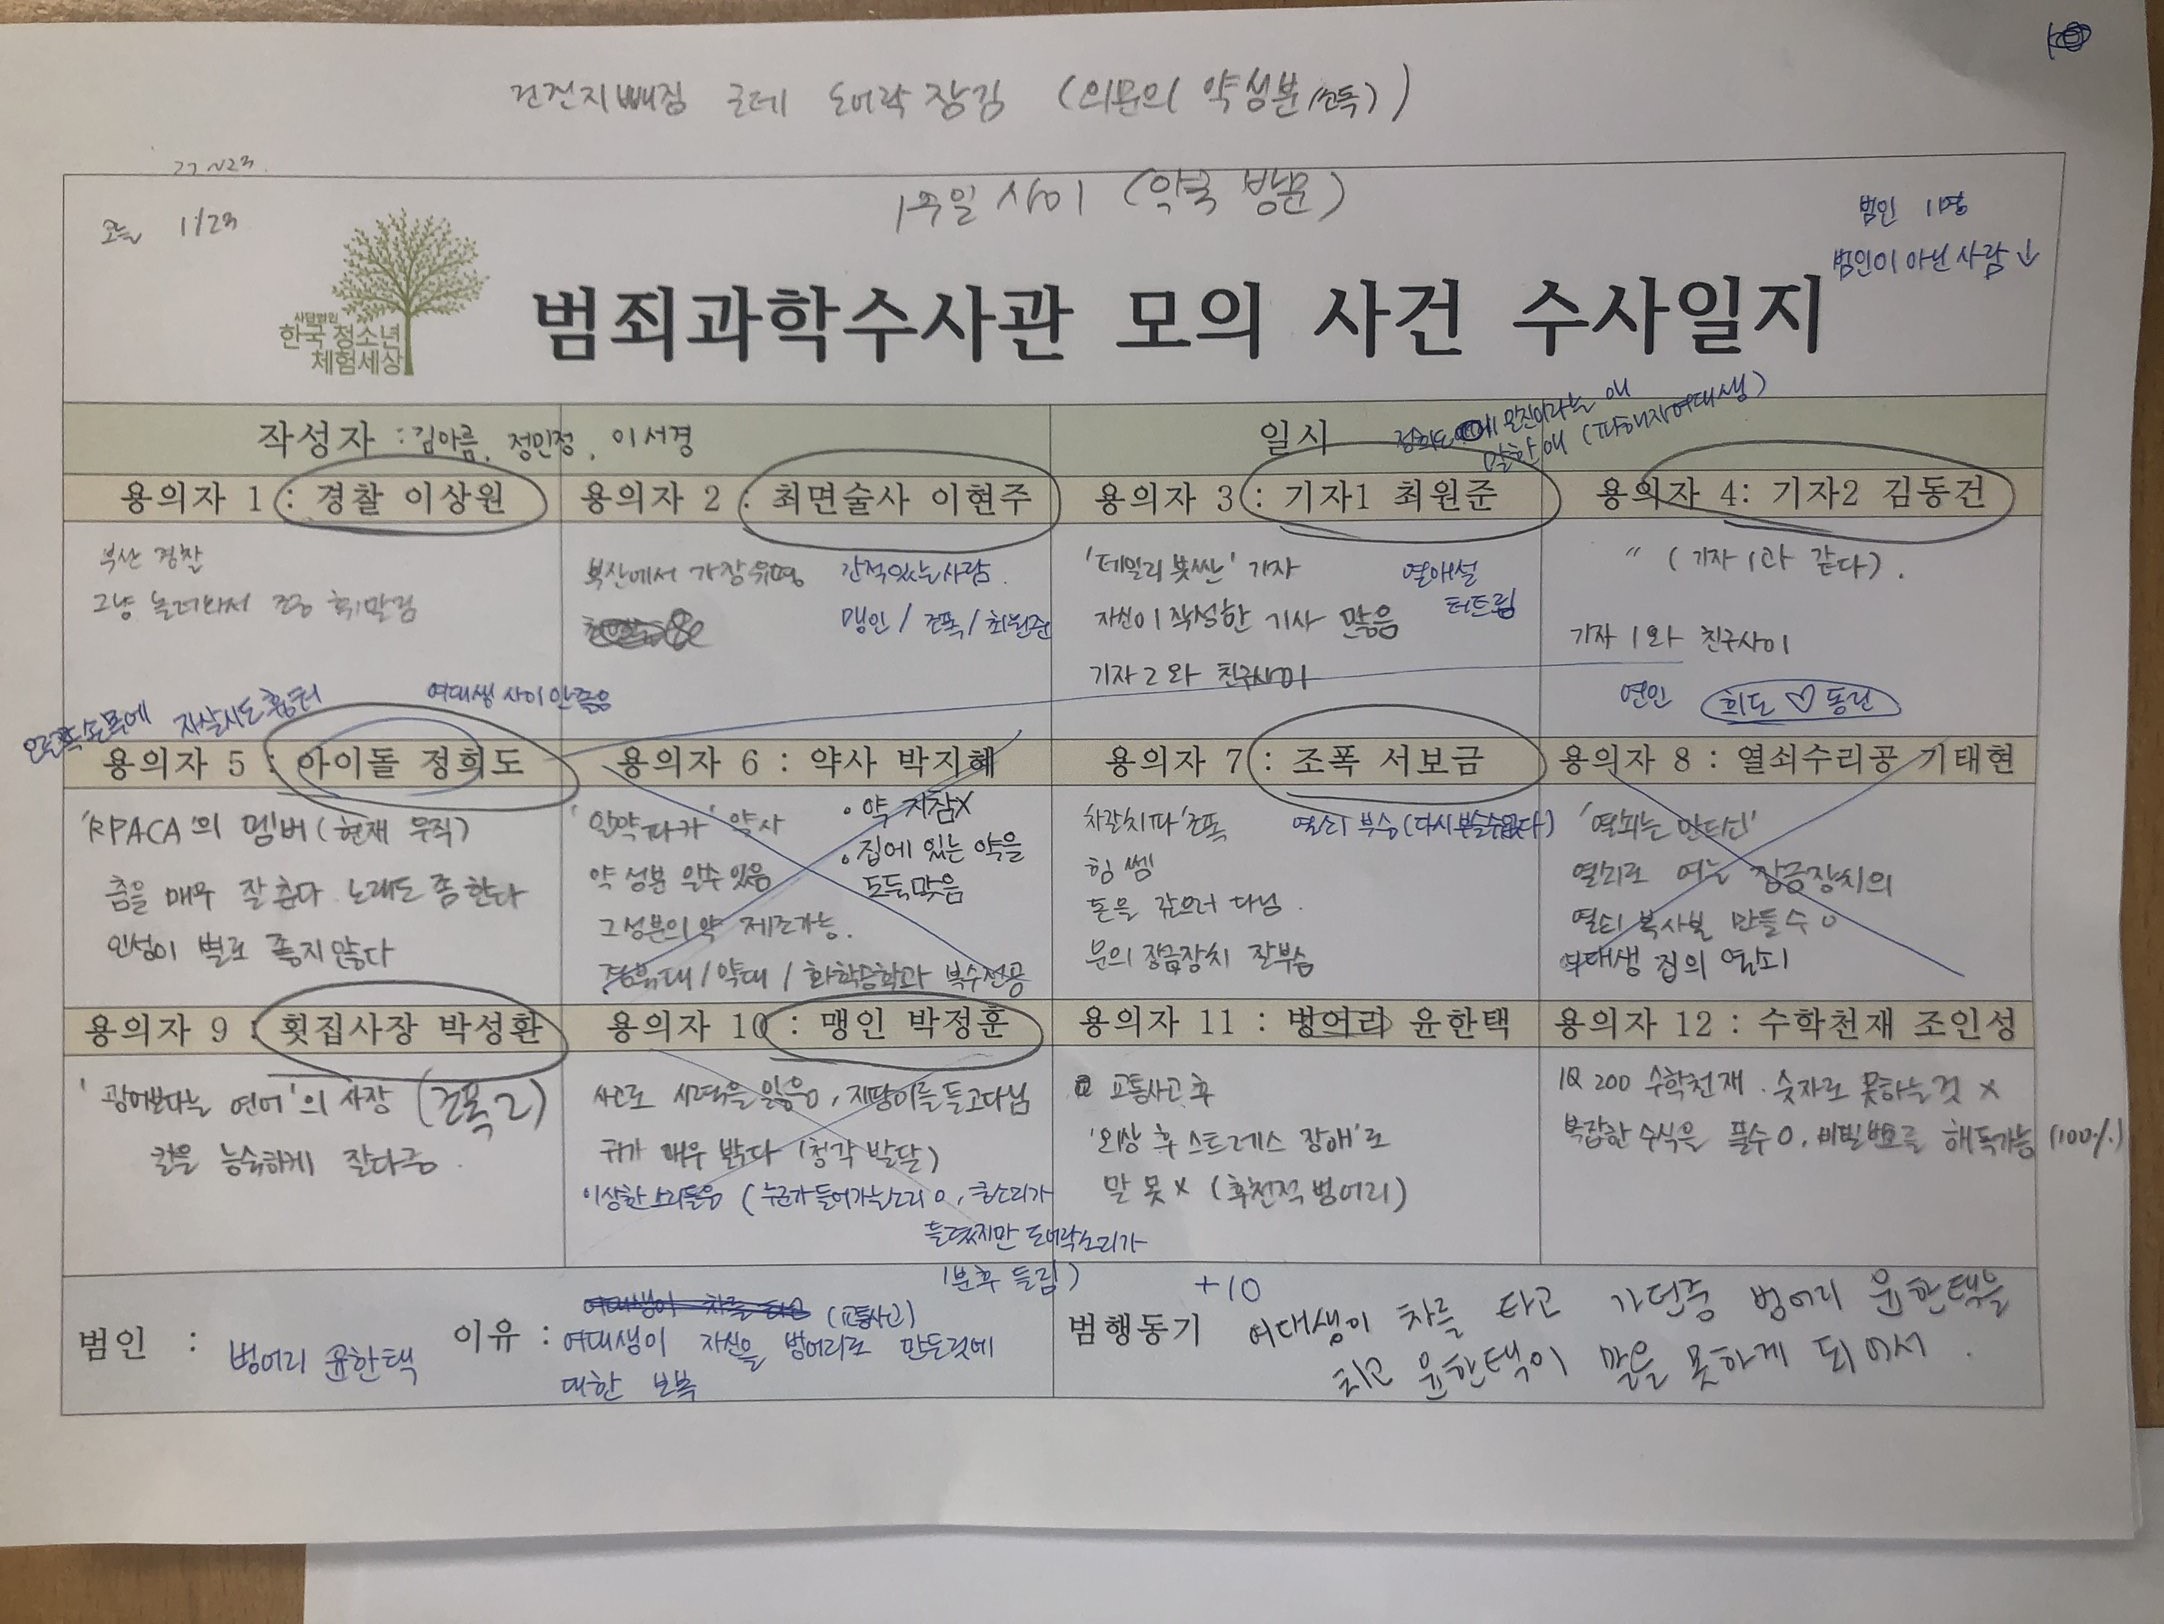 건전지빠짐 근데 도어락 잠김 (의문의 약성분
1주일 사이 (약국 방문)
오늘 1/23
범인 11명
범인이 아닌 사람↓
사단법인
한국 청소년
체험세상
범죄과학수사관 모의 사건 수사일지
작성자 : 김아름, 정민정, 이서경
일시
말한애 (피해자여대생)
용의자 1 : 경찰 이상원
용의자 2 : 최면술사 이현주
용의자 3 : 기자1 최원준
용의자 4: 기자2 김동건
부산 경찰
그냥 놀러와서 휘말림
부산에서 가장유명
간적있는사람.
맹인 / 조폭 / 최원준
기자
자신이 작성한 기사 많음
기자 2와 친구사이
열애설
터트림
" (기자 1과 같다).
기자 1와 친구사이
연인 희도♡동건
자살시도
여대생 사이 안좋음
용의자 5 : 아이돌 정희도
용의자 6 : 약사 박지혜
용의자 7 : 조폭 서보금
용의자 8 : 열쇠수리공 기태현
'RPACA'의 멤버 (현재 무직)
춤을 매우 잘 춘다 노래도 좀 한다
인성이 별로 좋지않다
약사
약 성분 알수있음
그성분의 약 제조가능.
약대 / 화학공학과 복수전공
• 약 지참X
• 집에 있는 약을
도둑맞음
조폭
힘 쎔
돈을 갚으러 다님.
문의 잠금장치 잘부숨
열쇠 부숨
'열쇠는 만다신'
열쇠로 여는 잠금장치의
열쇠 복사본 만들수 O
여대생 집의 열쇠
용의자 9 : 횟집사장 박성환
용의자 10 : 맹인 박정훈
용의자 11 : 벙어리 윤한택
용의자 12 : 수학천재 조인성
'광어보다는 연어'의 사장 (조폭2)
칼을 능숙하게 잘다룸.
사고로 시력을 잃음, 지팡이를 들고다님
귀가 매우 밝다 (청각 발달)
이상한 소리들음 (누군가 들어가는소리 O, 큰소리가
들렸지만 도어락소리가
1분후 들림)
교통사고 후
'외상 후 스트레스 장애'로
말 못 X (후천적 벙어리)
IQ 200 수학천재. 숫자로 못하는것 X
복잡한 수식을 풀수 O, 비밀번호를 해독가능 (100%)
범인 : 벙어리 윤한택
이유 : 여대생이 자신을 벙어리로 만든것에
(교통사고)
대한 보복
+10
범행동기 여대생이 차를 타고 가던중 벙어리 윤한택을
치고 윤한택이 말을 못하게 되어서.